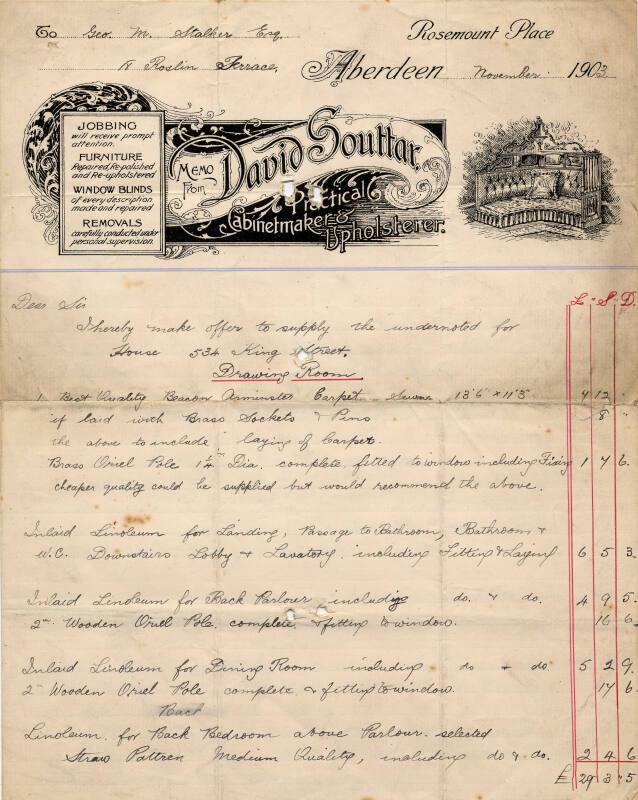 To Geo. M. Stalker Esq. Rosemount Place
18 Roslin Terrace, Aberdeen November 1903
JOBBING
will receive prompt
attention.
FURNITURE
Repaired, Re-polished
and Re-upholstered
WINDOW BLINDS
of every description
made and repaired
REMOVALS
carefully conducted under
personal supervision.
Memo from David Souttar,
Practical
Cabinetmaker &
Upholsterer.
£ S. D.
Dear Sir
I hereby make offer to supply the undernoted for
House 534 King Street.
Drawing Room
1 Best Quality Beacon Axminster Carpet Sewn 13'6" x 11'3" 7 12 "
if laid with Brass Sockets & Pins " 8 "
the above to include laying of Carpet.
Brass Oriel Pole 1¼ in Dia. complete fitted to window including Fixing 1 7 6.
cheaper quality could be supplied but would recommend the above.
Inlaid Linoleum for Landing, Passage to Bathroom, Bathroom &
W.C. Downstairs Lobby & Lavatory. including Fitting & Laying 6 5 3.
Inlaid Linoleum for Back Parlour including do. & do. 4 9 5.
2 in Wooden Oriel Pole. complete & fitting to window. 16 6.
Inlaid Linoleum for Dining Room including do & do. 5 2 9.
2 in Wooden Oriel Pole complete. & fitting to window. 17 6
Back
Linoleum. for Back Bedroom above Parlour. selected
Straw Pattren Medium Quality, including do & do. 2 4 6
£ 29 3 5